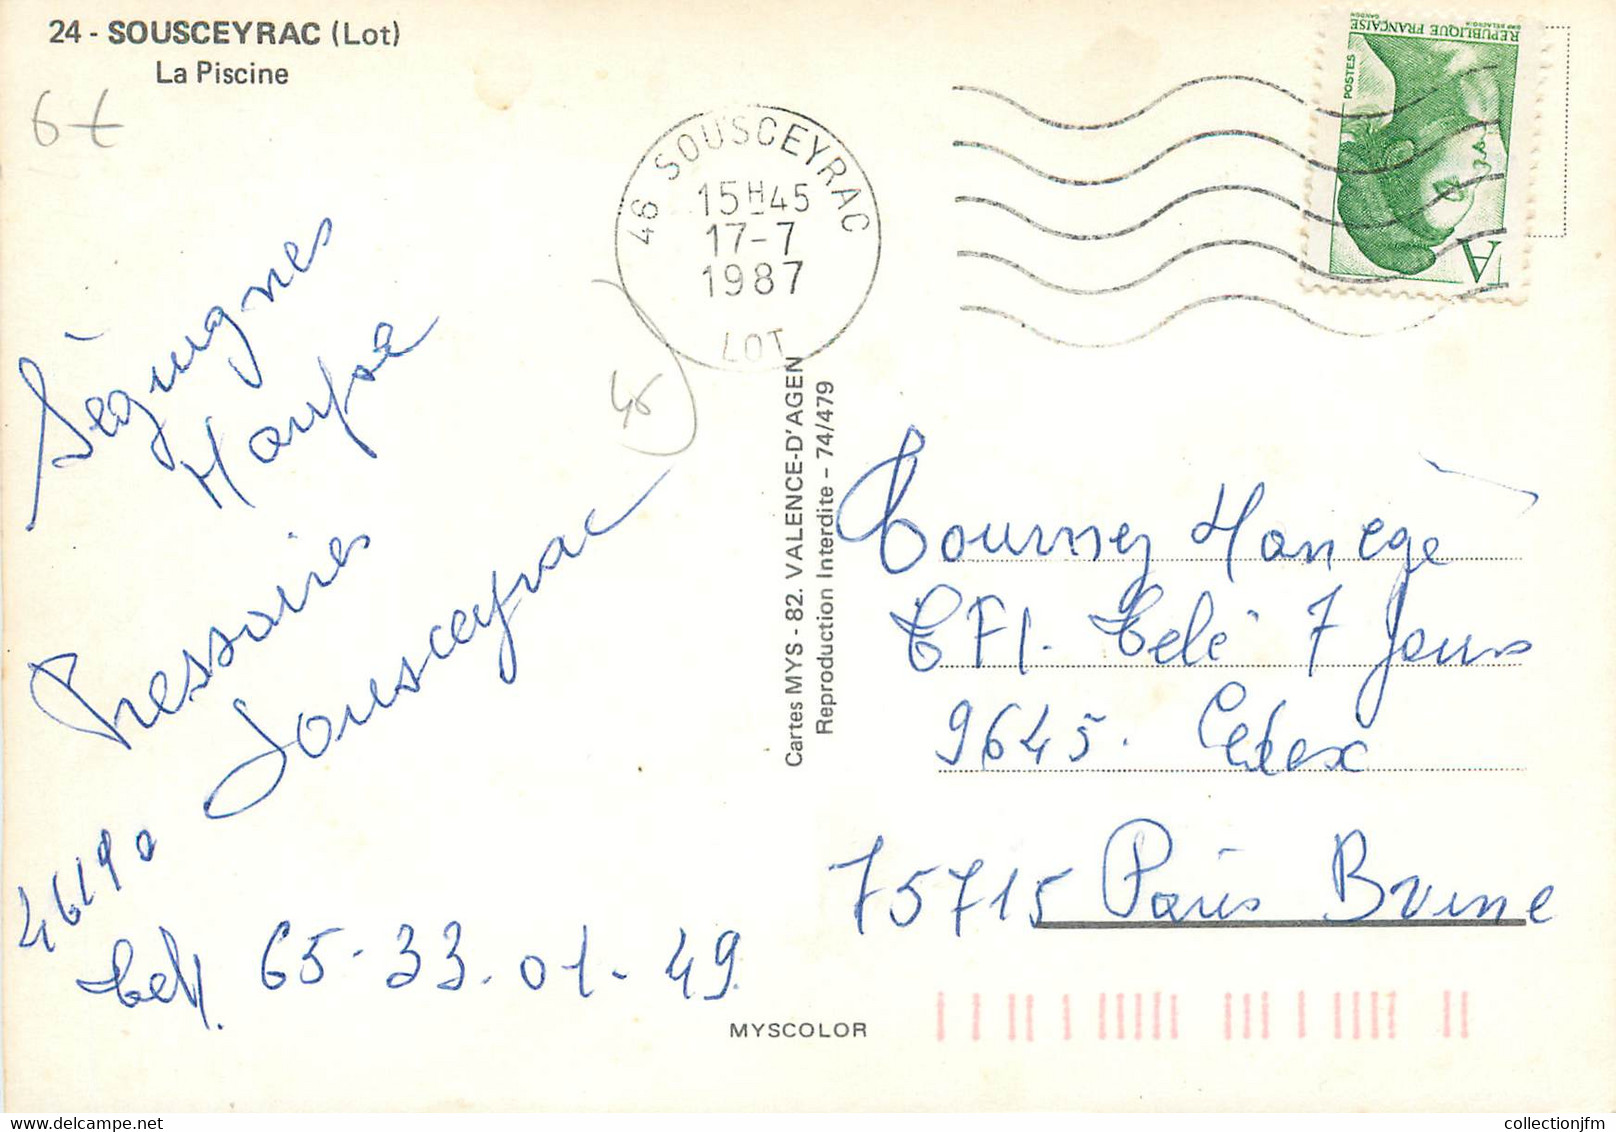 24 - SOUSCEYRAC (Lot)
La Piscine
6€
46 SOUSCEYRAC
15H45
17-7
1987
LOT
REPUBLIQUE FRANÇAISE
POSTES
A
Séguignes
Maryse
Pressoires
Sousceyrac
46190
Tel. 65-33-01-49
46
Cartes MYS - 82. VALENCE-D'AGEN
Reproduction Interdite - 74/479
Tournez Manège
TF1. Télé 7 Jours
9645. Cedex
75715 Paris Brune
MYSCOLOR
collectionjfm